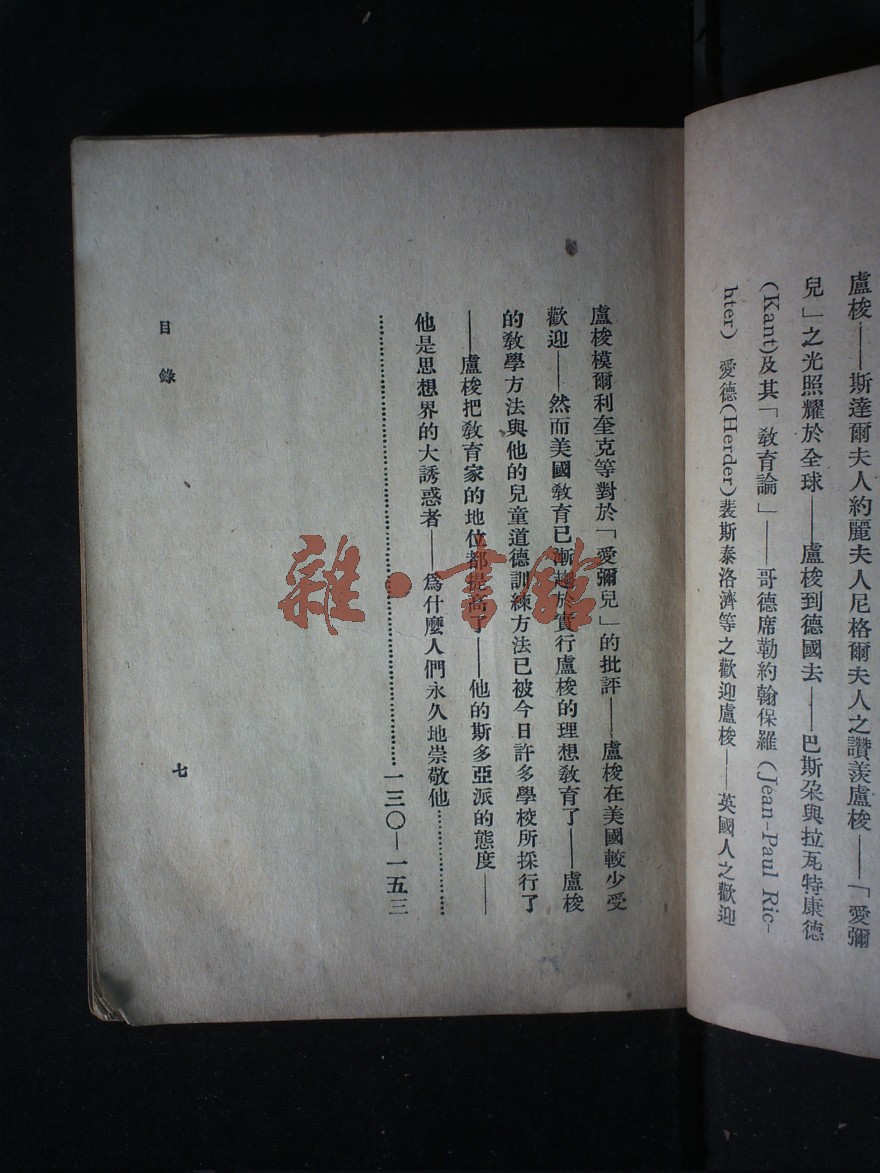 盧梭——斯達爾夫人約麗夫人尼格爾夫人之讚羨盧梭——「愛彌
兒」之光照耀於全球——盧梭到德國去——巴斯朶與拉瓦特康德
(Kant)及其「教育論」——哥德席勒約翰保羅(Jean-Paul Ric-
hter) 愛德(Herder)裴斯泰洛濟等之歡迎盧梭——英國人之歡迎
盧梭模爾利奎克等對於「愛彌兒」的批評——盧梭在美國較少受
歡迎——然而美國敎育已漸趨於實行盧梭的理想敎育了——盧梭
的敎學方法與他的兒童道德訓練方法已被今日許多學校所採行了
——盧梭把敎育家的地位都提高了——他的斯多亞派的態度——
他是思想界的大誘惑者——爲什麼人們永久地崇敬他…………
……………………………………一三〇—一五三
目錄
七
雜·書館